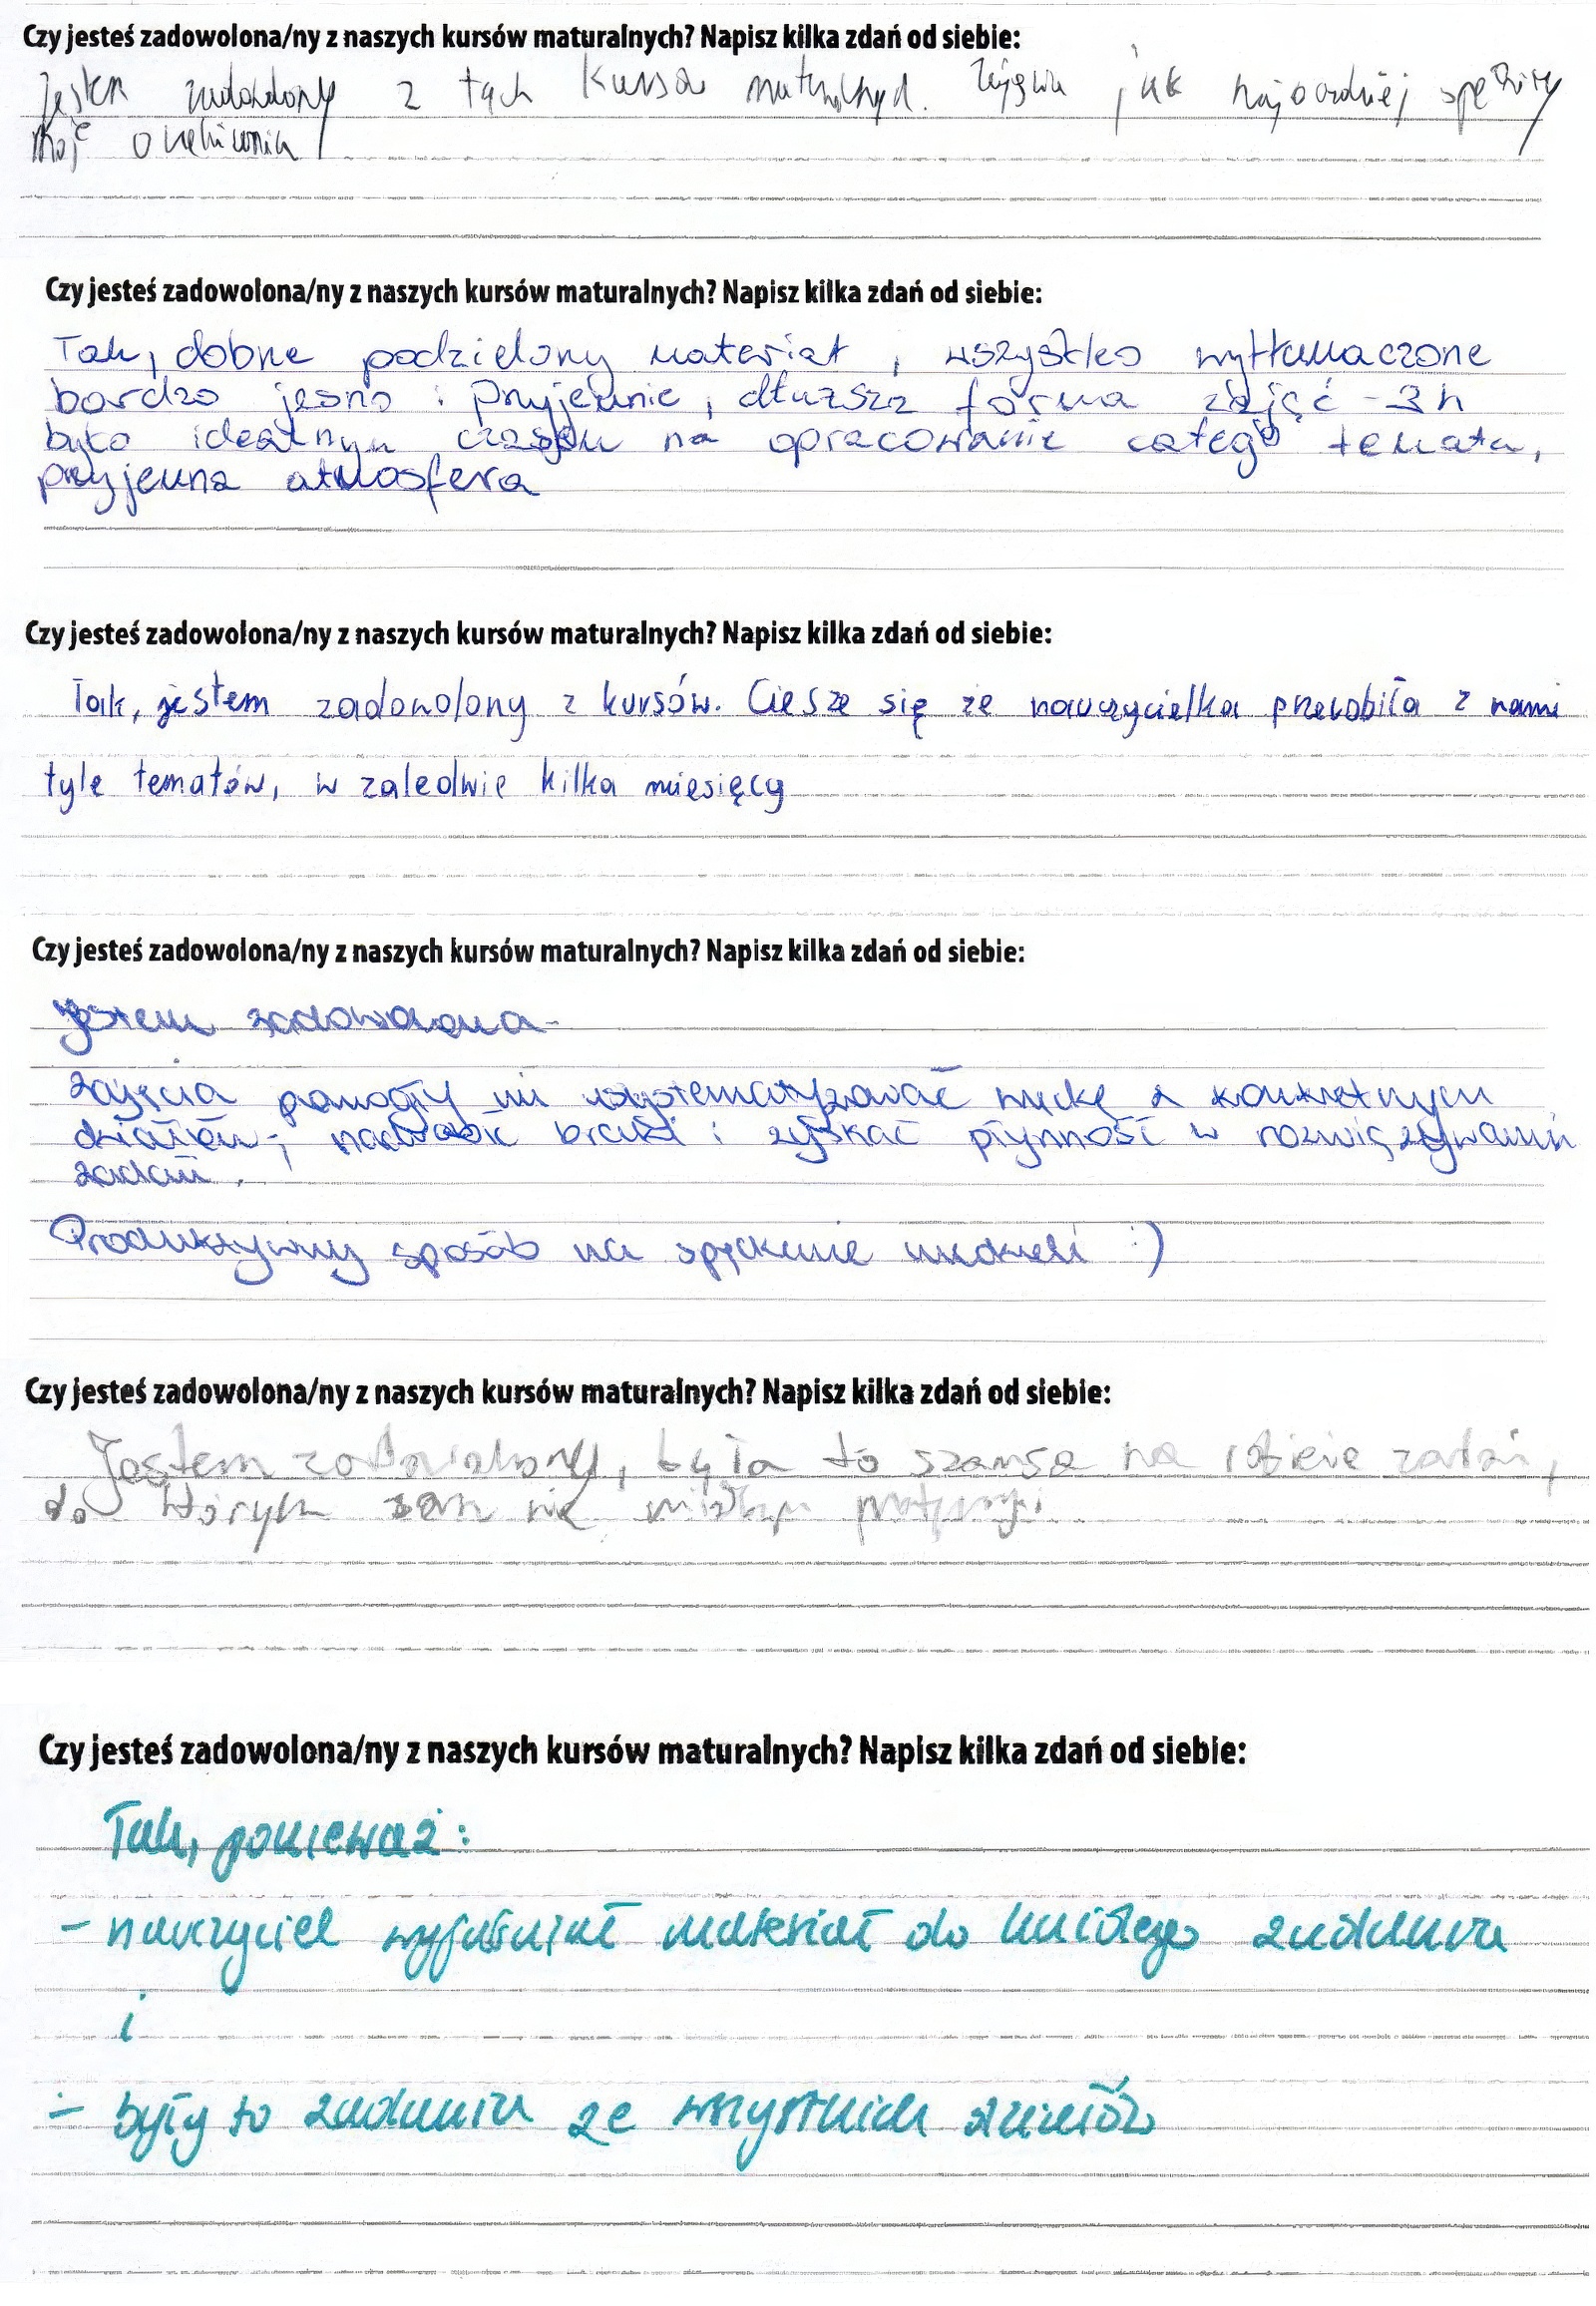 Czy jesteś zadowolona/ny z naszych kursów maturalnych? Napisz kilka zdań od siebie:
Jestem zadowolony z tych kursów maturalnych. Zajęcia jak najbardziej spełniły
moje oczekiwania
Czy jesteś zadowolona/ny z naszych kursów maturalnych? Napisz kilka zdań od siebie:
Tak, dobrze podzielony materiał, wszystko wytłumaczone
bardzo jasno i przyjemnie, dłuższa forma zajęć - 3h
było idealnym czasem na opracowanie całego tematu,
przyjemna atmosfera
Czy jesteś zadowolona/ny z naszych kursów maturalnych? Napisz kilka zdań od siebie:
Tak, jestem zadowolony z kursów. Ciesze się że nauczycielka przerobiła z nami
tyle tematów, w zaledwie kilka miesięcy
Czy jesteś zadowolona/ny z naszych kursów maturalnych? Napisz kilka zdań od siebie:
Jestem zadowolona.
Zajęcia pomogły mi usystematyzować wiedzę z konkretnych
działów, nadrobić braki i zyskać płynność w rozwiązywaniu
zadań.
Produktywny sposób na spędzenie niedzieli :)
Czy jesteś zadowolona/ny z naszych kursów maturalnych? Napisz kilka zdań od siebie:
Jestem zadowolony, była to szansa na robienie zadań,
do których sam nie
Czy jesteś zadowolona/ny z naszych kursów maturalnych? Napisz kilka zdań od siebie:
Tak, ponieważ:
- nauczyciel wyjaśniał materiał do każdego zadania
i
- były to zadania ze wszystkich działów